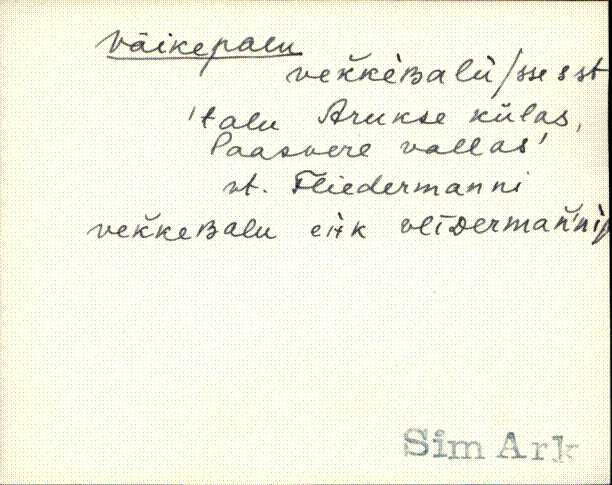 Väikepalu
vek̆kèʙalù /sse s st
'talu Arukse külas,
Paasvere vallas'
vt. Fliedermanni
vek̆keʙalu ehk
Sim Ark